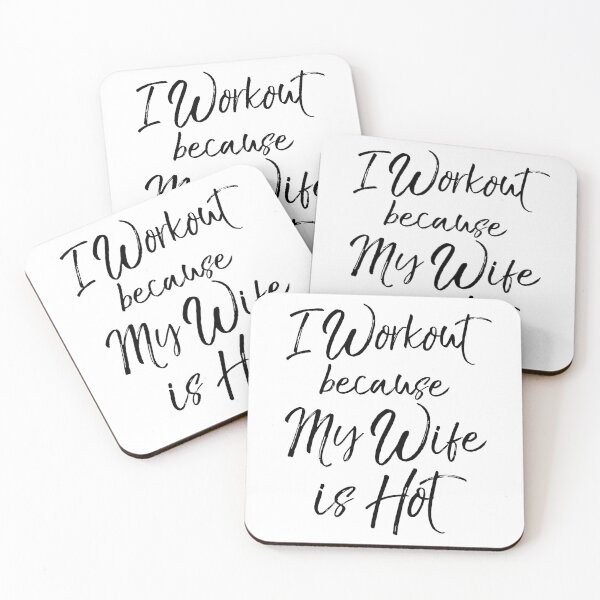 I Workout
because
My Wife
I Workout
because
My Wife
I Workout
because
My Wife
is
I Workout
because
My Wife
is Hot